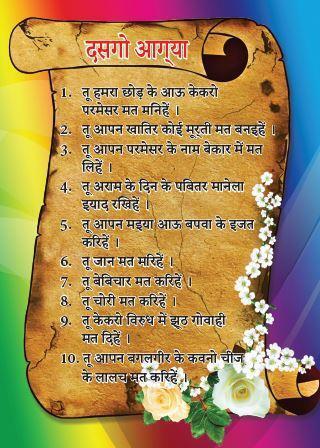 दसगो आग्या
1. तू हमरा छोड़ के आऊ केकरो
परमेसर मत मनिहें ।
2. तू आपन खातिर कोई मूरती मत बनइहें ।
3. तू आपन परमेसर के नाम बेकार में मत
लिहें ।
4. तू अराम के दिन के पबितर मानेला
इयाद रखिहें ।
5. तू आपन मइया आऊ बपवा के इजत
करिहें ।
6. तू जान मत मरिहें ।
7. तू बेबिचार मत करिहें ।
8. तू चोरी मत करिहें ।
9. तू केकरो विरुध में झूठ गोवाही
मत दिहें ।
10. तू आपन बगलगीर के कवनो चीज
के लालच मत करिहें ।